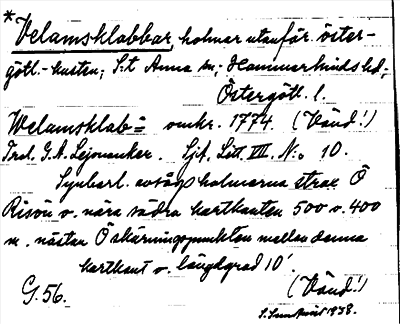 * Velamsklabbar, holmar utanför öster-
götl.-kusten; S:t Anna sn; Hammarkinds hd;
Östergötl. l.
Welamsklab= omkr. 1774. (Vänd!)
G. A. Sjf. Litt VIII. N:o 10.
Synbarl. avtags holmarna strax Ö
Risön o. nära södra kartkanten 500 o. 400
m. nästan Ö skärningspunkten mellan denna
kartkant o. längdgrad 10'.
(Vänd!)
G. 56.
1938.